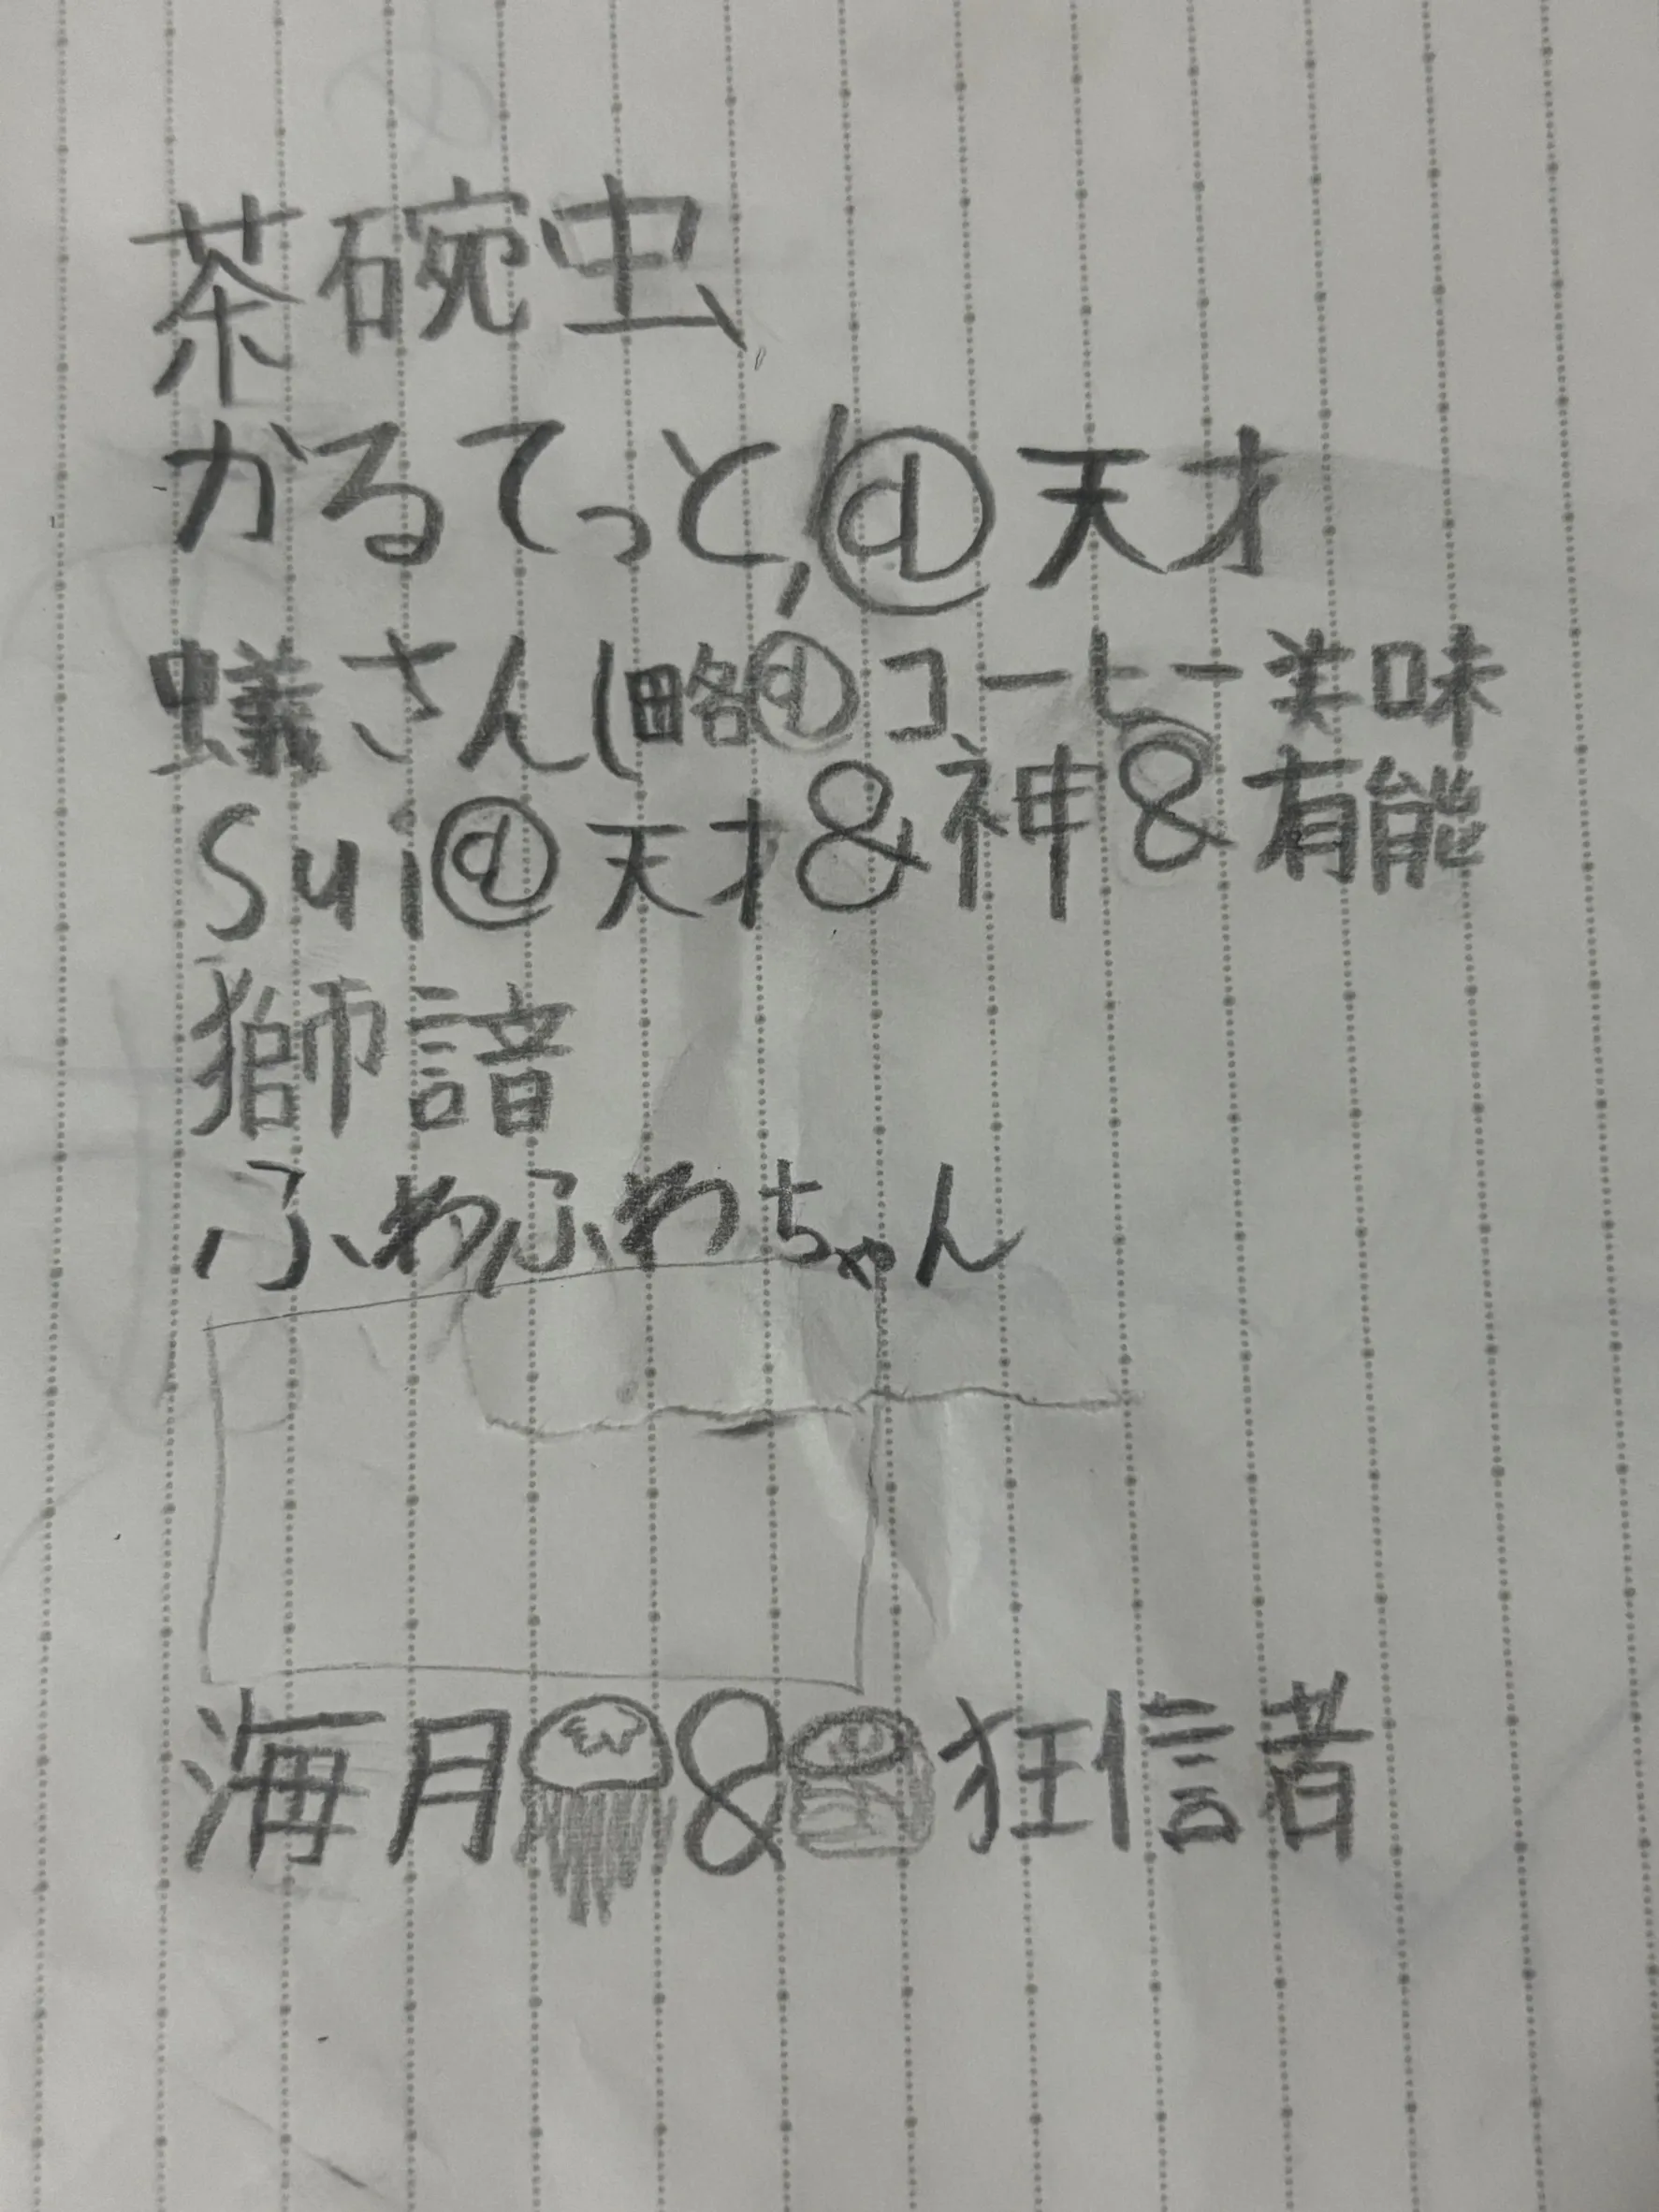 茶碗虫
かるてっと,@天才
蟻さん(略@コーヒー美味
Sui@天才&神&有能
獅諳
ふわふわちゃん
海月&狂信者